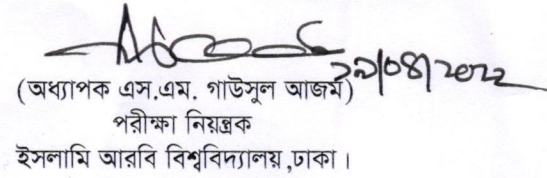 ২৯/০৪/২০২২
(অধ্যাপক এস.এম. গাউসুল আজম)
পরীক্ষা নিয়ন্ত্রক
ইসলামি আরবি বিশ্ববিদ্যালয় ,ঢাকা ।